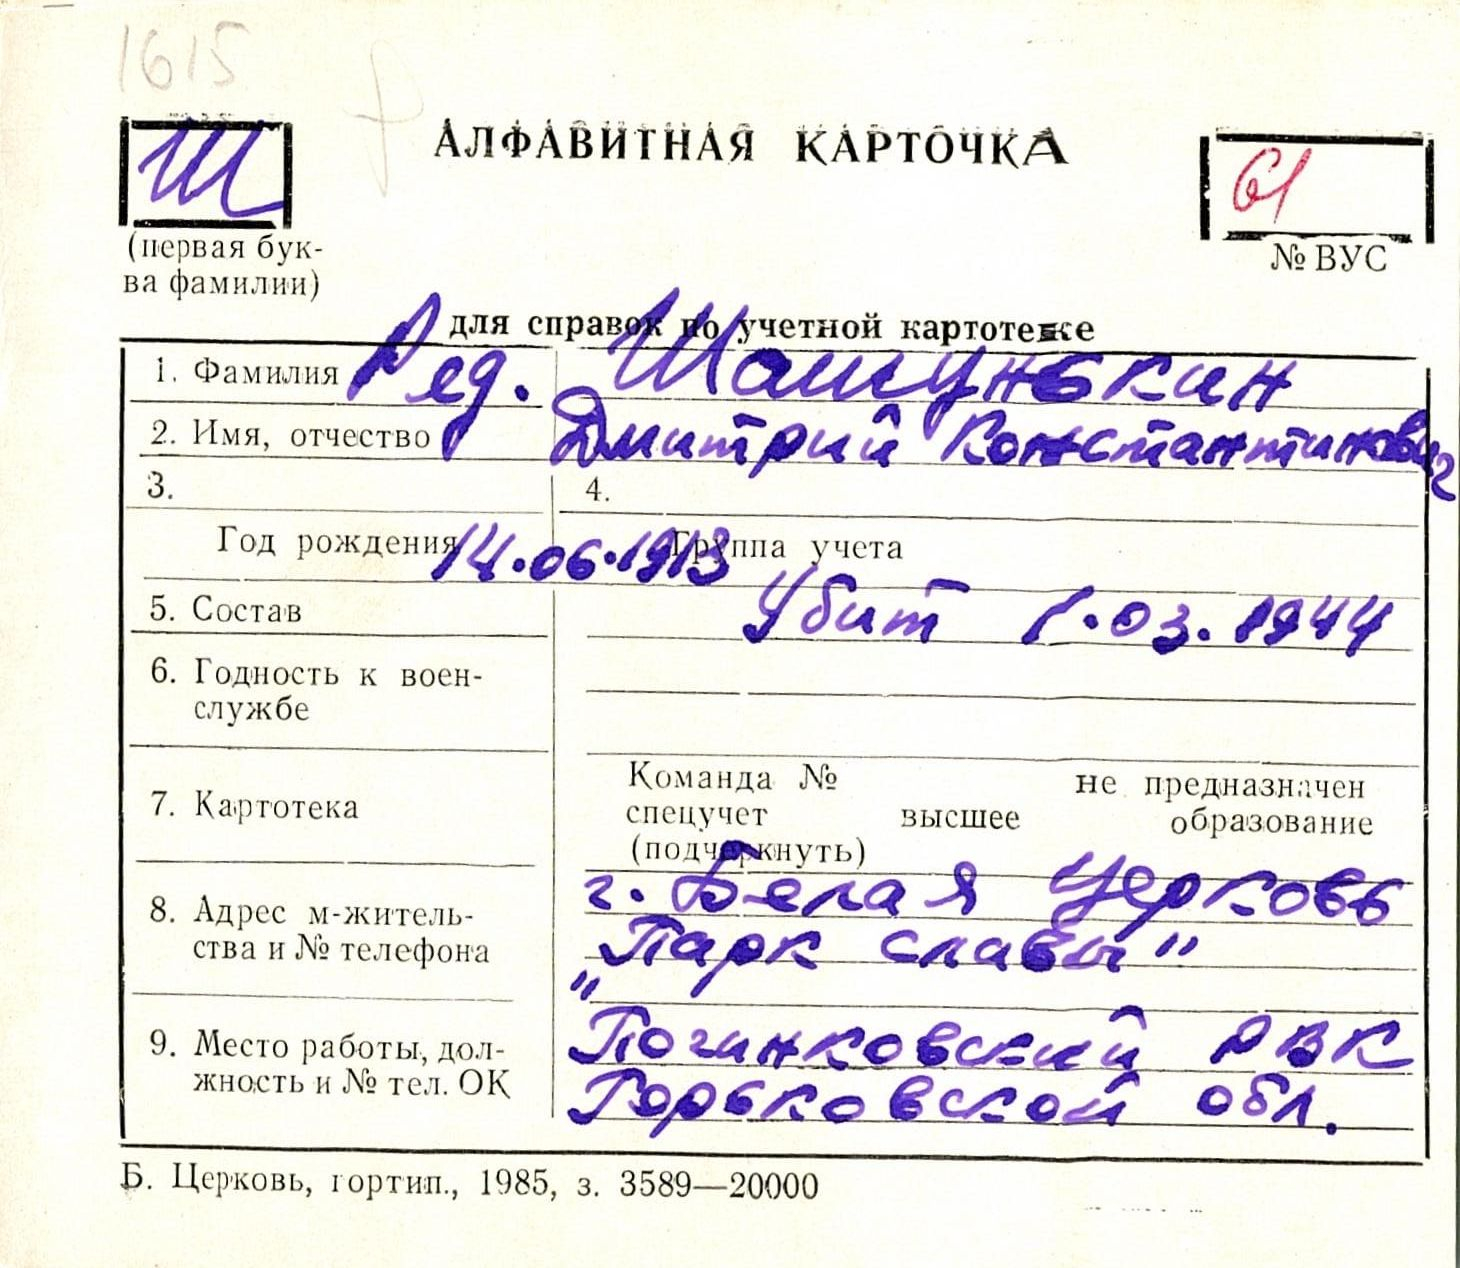 1615
Ш
АЛФАВИТНАЯ КАРТОЧКА
61
(первая бук-
ва фамилии)
№ ВУС
для справок по учетной картотеке
1. Фамилия Ряд. Шашунькин
2. Имя, отчество Дмитрий Константинович
3. 4.
Год рождения 14.06.1913 Группа учета
5. Состав Убит 1.03.1944
6. Годность к воен-
службе
Команда № не предназначен
7. Картотека спецучет высшее образование
(подчеркнуть)
8. Адрес м-житель-
ства и № телефона
г. Белая Церковь
„Парк славы"
9. Место работы, дол-
жность и № тел. ОК
Починковский РВК
Горьковской обл.
Б. Церковь, гортип., 1985, з. 3589—20000